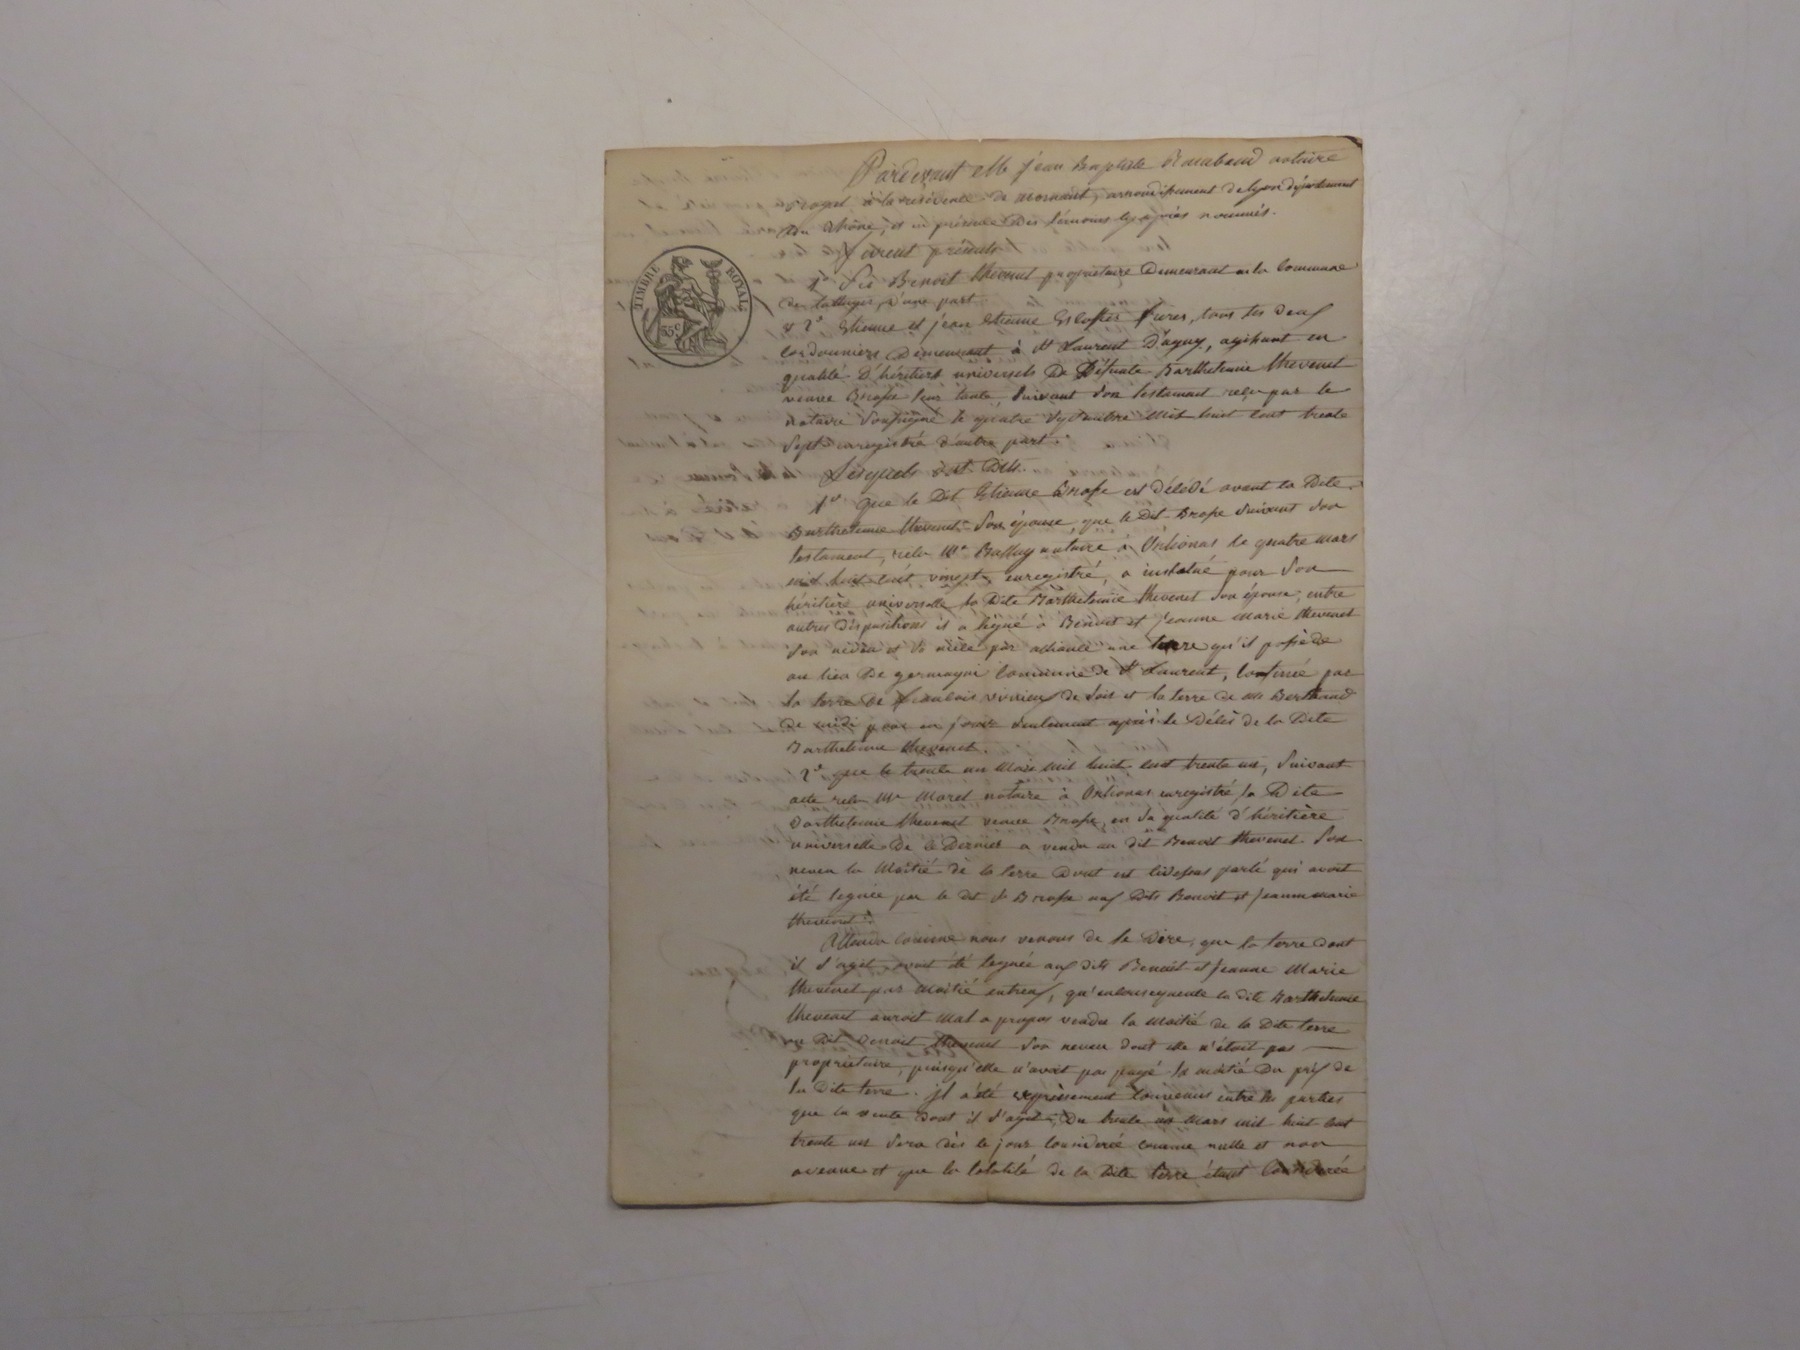 Pardevant Me Jean Baptiste Raimbaud notaire
royal à la résidence de mornant, arrondissement de lyon département
du Rhône, et en présence des témoins cy après nommés.
furent présents
TIMBRE ROYAL
35c
1° Sr Benoit thevenet propriétaire demeurant en la Commune
de taluyers, d'une part
& 2° Etienne et jean Etienne frères, tous les deux
Cordonniers demeurant à St Laurent D'agny, agissant en
qualité D'héritiers universels de Défunte Barthelemie thevenet
veuve Brosse leur tante, Suivant Son testament reçu par le
notaire Soussigné le quatre Septembre mil huit cent trente
Sept enregistré d'autre part.
Lesquels ont dit.
1° que le Dit Etienne Brosse est décédé avant la Dite
Barthelemie thevenet Son épouse, que le dit Brosse Suivant Son
testament, reçu Me notaire à Orlienas le quatre mars
mil huit cent vingt, enregistré, a institué pour Son
héritière universelle la Dite Barthelemie thevenet Son épouse; entre
autres dispositions il a légué à Benoit et jeanne Marie thevenet
Son neveu et Sa nièce par alliance une terre qu'il possède
au lieu De germagni Commune de St Laurent, Confinée par
la terre de vivien de Soir et la terre de Mr Bertrand
de midi pour en jouir Seulement après le Décès de la Dite
Barthelemie thevenet.
2° que le trente un Mars mil huit cent trente un, Suivant
acte reçu Me Morel notaire à Orlienas enregistré la Dite
Barthelemie thevenet veuve Brosse, en Sa qualité d'héritière
universelle De ce Dernier a vendu au dit Benoit thevenet Son
neveu la Moitié de la terre dont est Cidessus parlé qui avoit
été leguée par le dit Sr Brosse aux Dits Benoit et jeanne marie
thevenet.
Attendu Comme nous venons de le Dire, que la terre dont
il S'agit, avoit été leguée aux dits Benoit et jeanne Marie
thevenet par Moitié entreux, qu'enconsequence la dite Barthelemie
thevenet auroit Mal a propos vendu la Moitié de la Dite terre
au Dit Benoit thevenet Son neveu dont elle n'étoit pas
propriétaire, puisqu'elle n'avoit pas payé la moitié Du prix de
la Dite terre. il a été expressement Convenus entre les parties
que la vente dont il S'agit, Du trente un Mars mil huit cent
trente un Sera dès ce jour Considerée comme nulle et non
avenue et que la totalité de la Dite terre étant Considerée